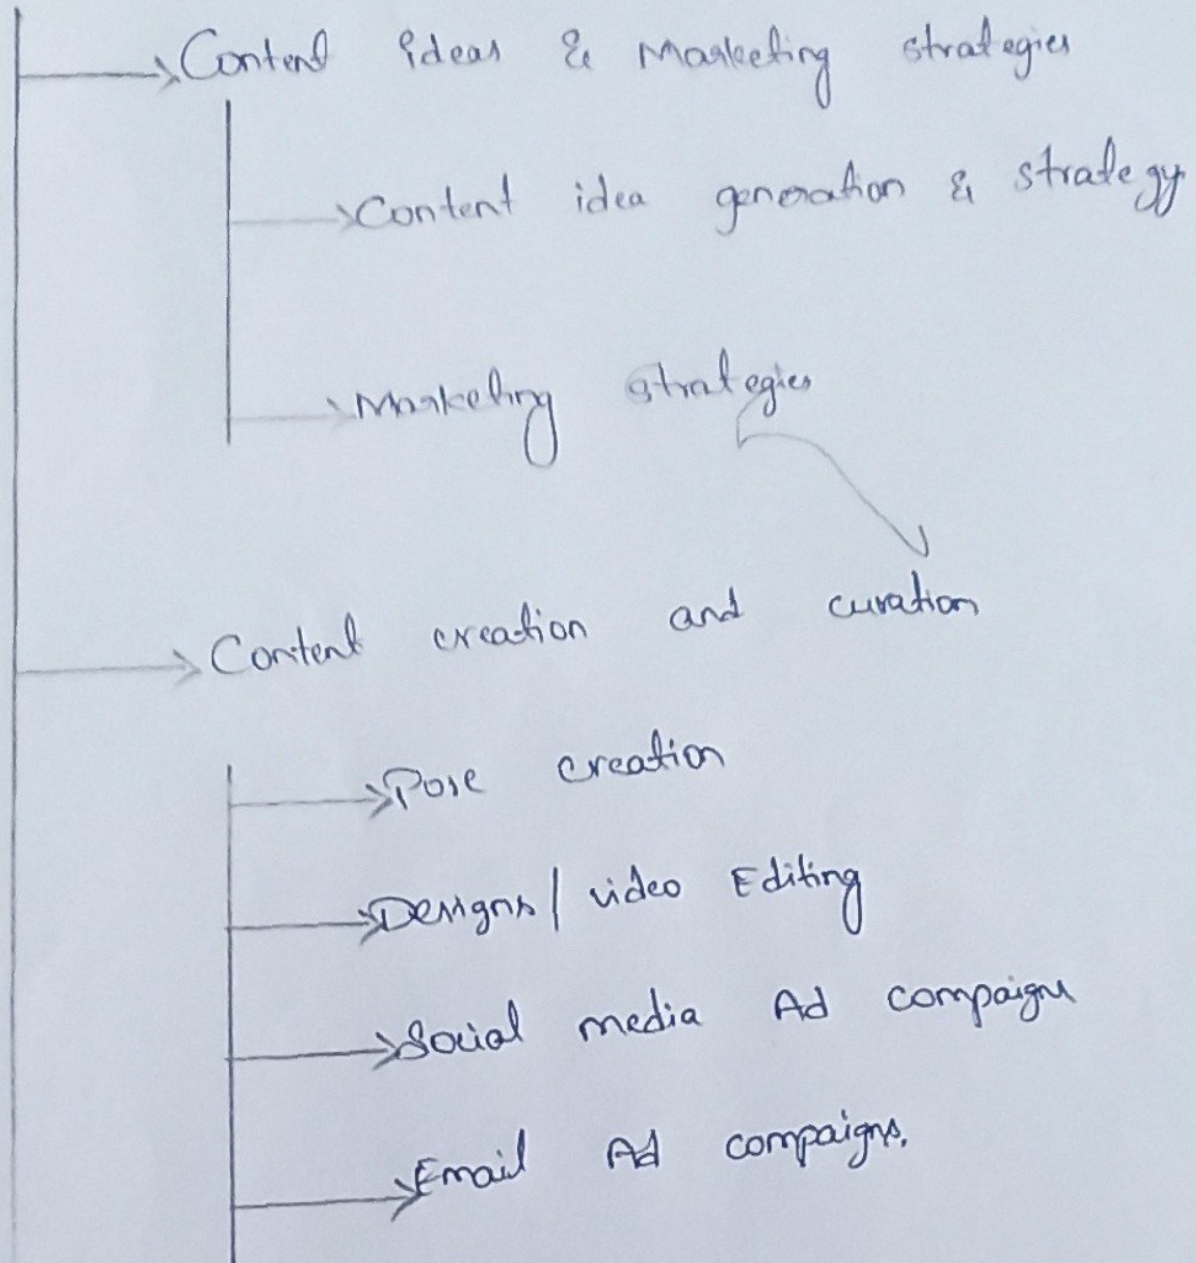 Content ideas & Marketing strategies
Content idea generation & strategy
Marketing strategies
Content creation and curation
Pose creation
Designs / video Editing
Social media Ad compaigns
Email Ad compaigns.